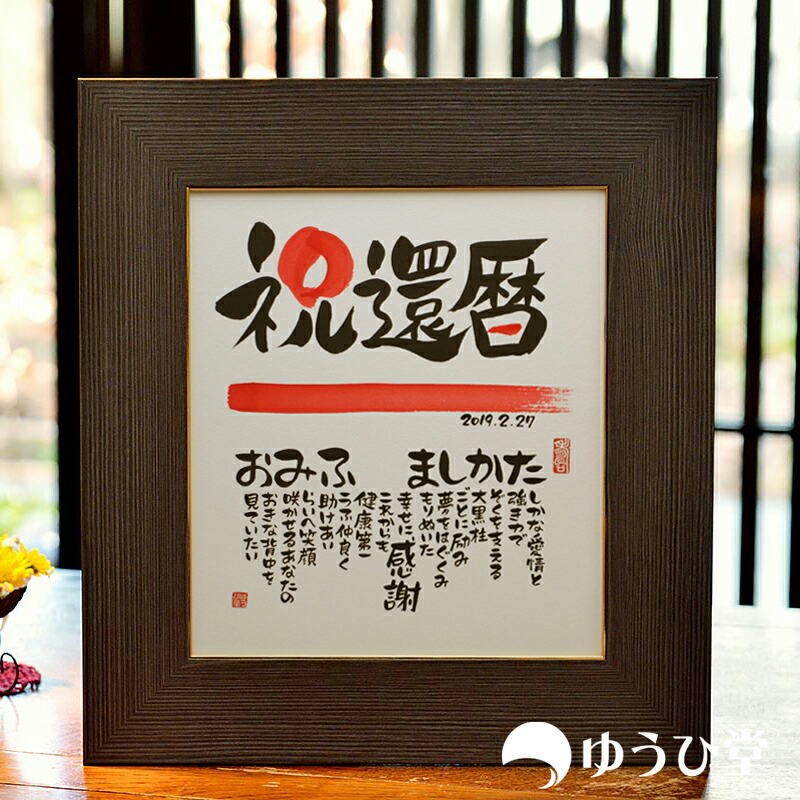 祝還暦
2019.2.27
たかしま
ふみお
しかな愛情と
強さで
ぞくを支える
大黒柱
ごとに励み
夢をはぐくみ
もりぬいた
幸せに感謝
これからも
健康第一
うふ仲良く
助けあい
らいへ笑顔
咲かせるあなたの
おきな背中を
見ていたい
ゆうひ堂